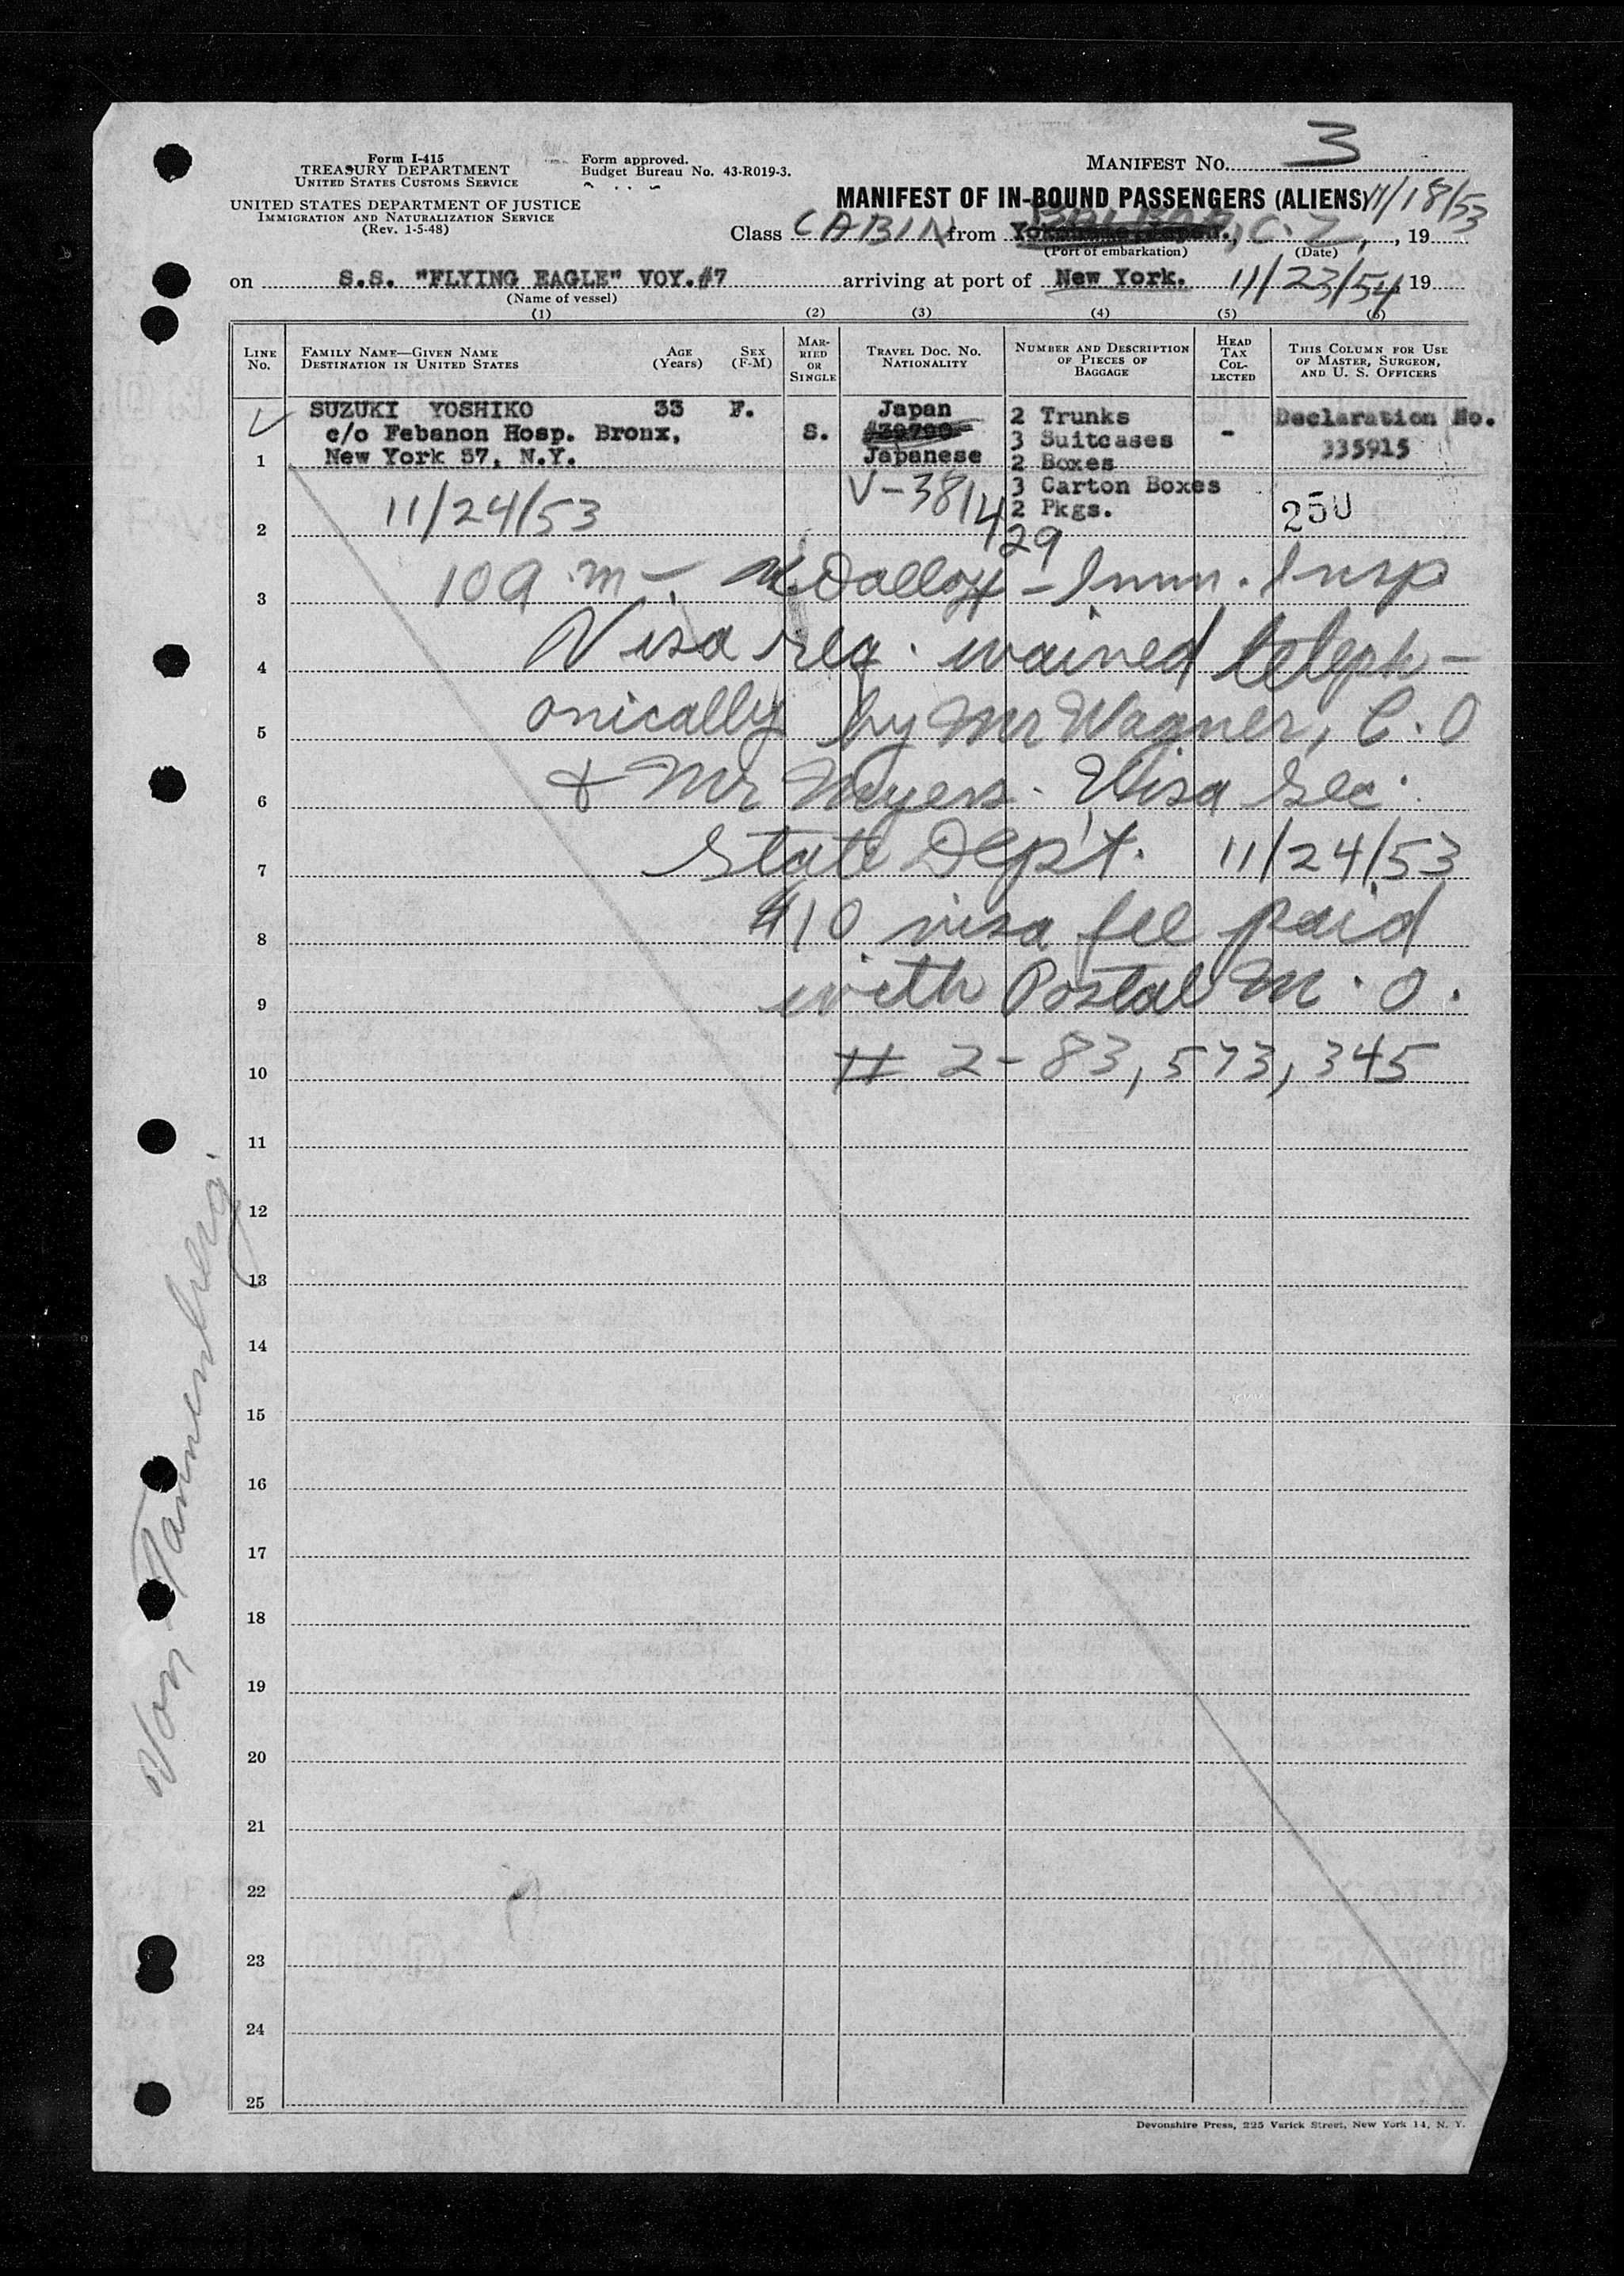 Form I-415
TREASURY DEPARTMENT
UNITED STATES CUSTOMS SERVICE
UNITED STATES DEPARTMENT OF JUSTICE
IMMIGRATION AND NATURALIZATION SERVICE
(Rev. 1-5-48)
Form approved.
Budget Bureau No. 43-R019-3.
MANIFEST NO. 3
MANIFEST OF IN-BOUND PASSENGERS (ALIENS) 11/18/53
Class CABIN from BALBOA, C.Z., 19
(Port of embarkation) (Date)
on S.S. "FLYING EAGLE" VOY.#7 arriving at port of New York. 11/23/54, 19
(Name of vessel)
(1) (2) (3) (4) (5) (6)
LINE NO.
FAMILY NAME—GIVEN NAME
DESTINATION IN UNITED STATES
AGE (Years)
SEX (F-M)
MARRIED OR SINGLE
TRAVEL DOC. NO.
NATIONALITY
NUMBER AND DESCRIPTION OF PIECES OF BAGGAGE
HEAD TAX COLLECTED
THIS COLUMN FOR USE OF MASTER, SURGEON, AND U. S. OFFICERS
SUZUKI YOSHIKO 33 F. Japan 2 Trunks Declaration No.
c/o Febanon Hosp. Bronx, S. 3 Suitcases - 335915
1 New York 57, N.Y. Japanese 2 Boxes
V-3814 3 Carton Boxes
2 11/24/53 429 2 Pkgs. 250
3 10 a.m - - Imm. Insp
4 Visa req. waived teleph-
5 onically by Mr Wagner, C.O
6 & Mr Meyers. Visa Sec.
7 State Dep't. 11/24/53
8 $10 visa fee paid
9 with Postal M.O.
10 # 2-83,573,345
11
12
13
14
15
16
17
18
19
20
21
22
23
24
25
Von Tannenberg.
Devonshire Press, 225 Varick Street, New York 14, N. Y.